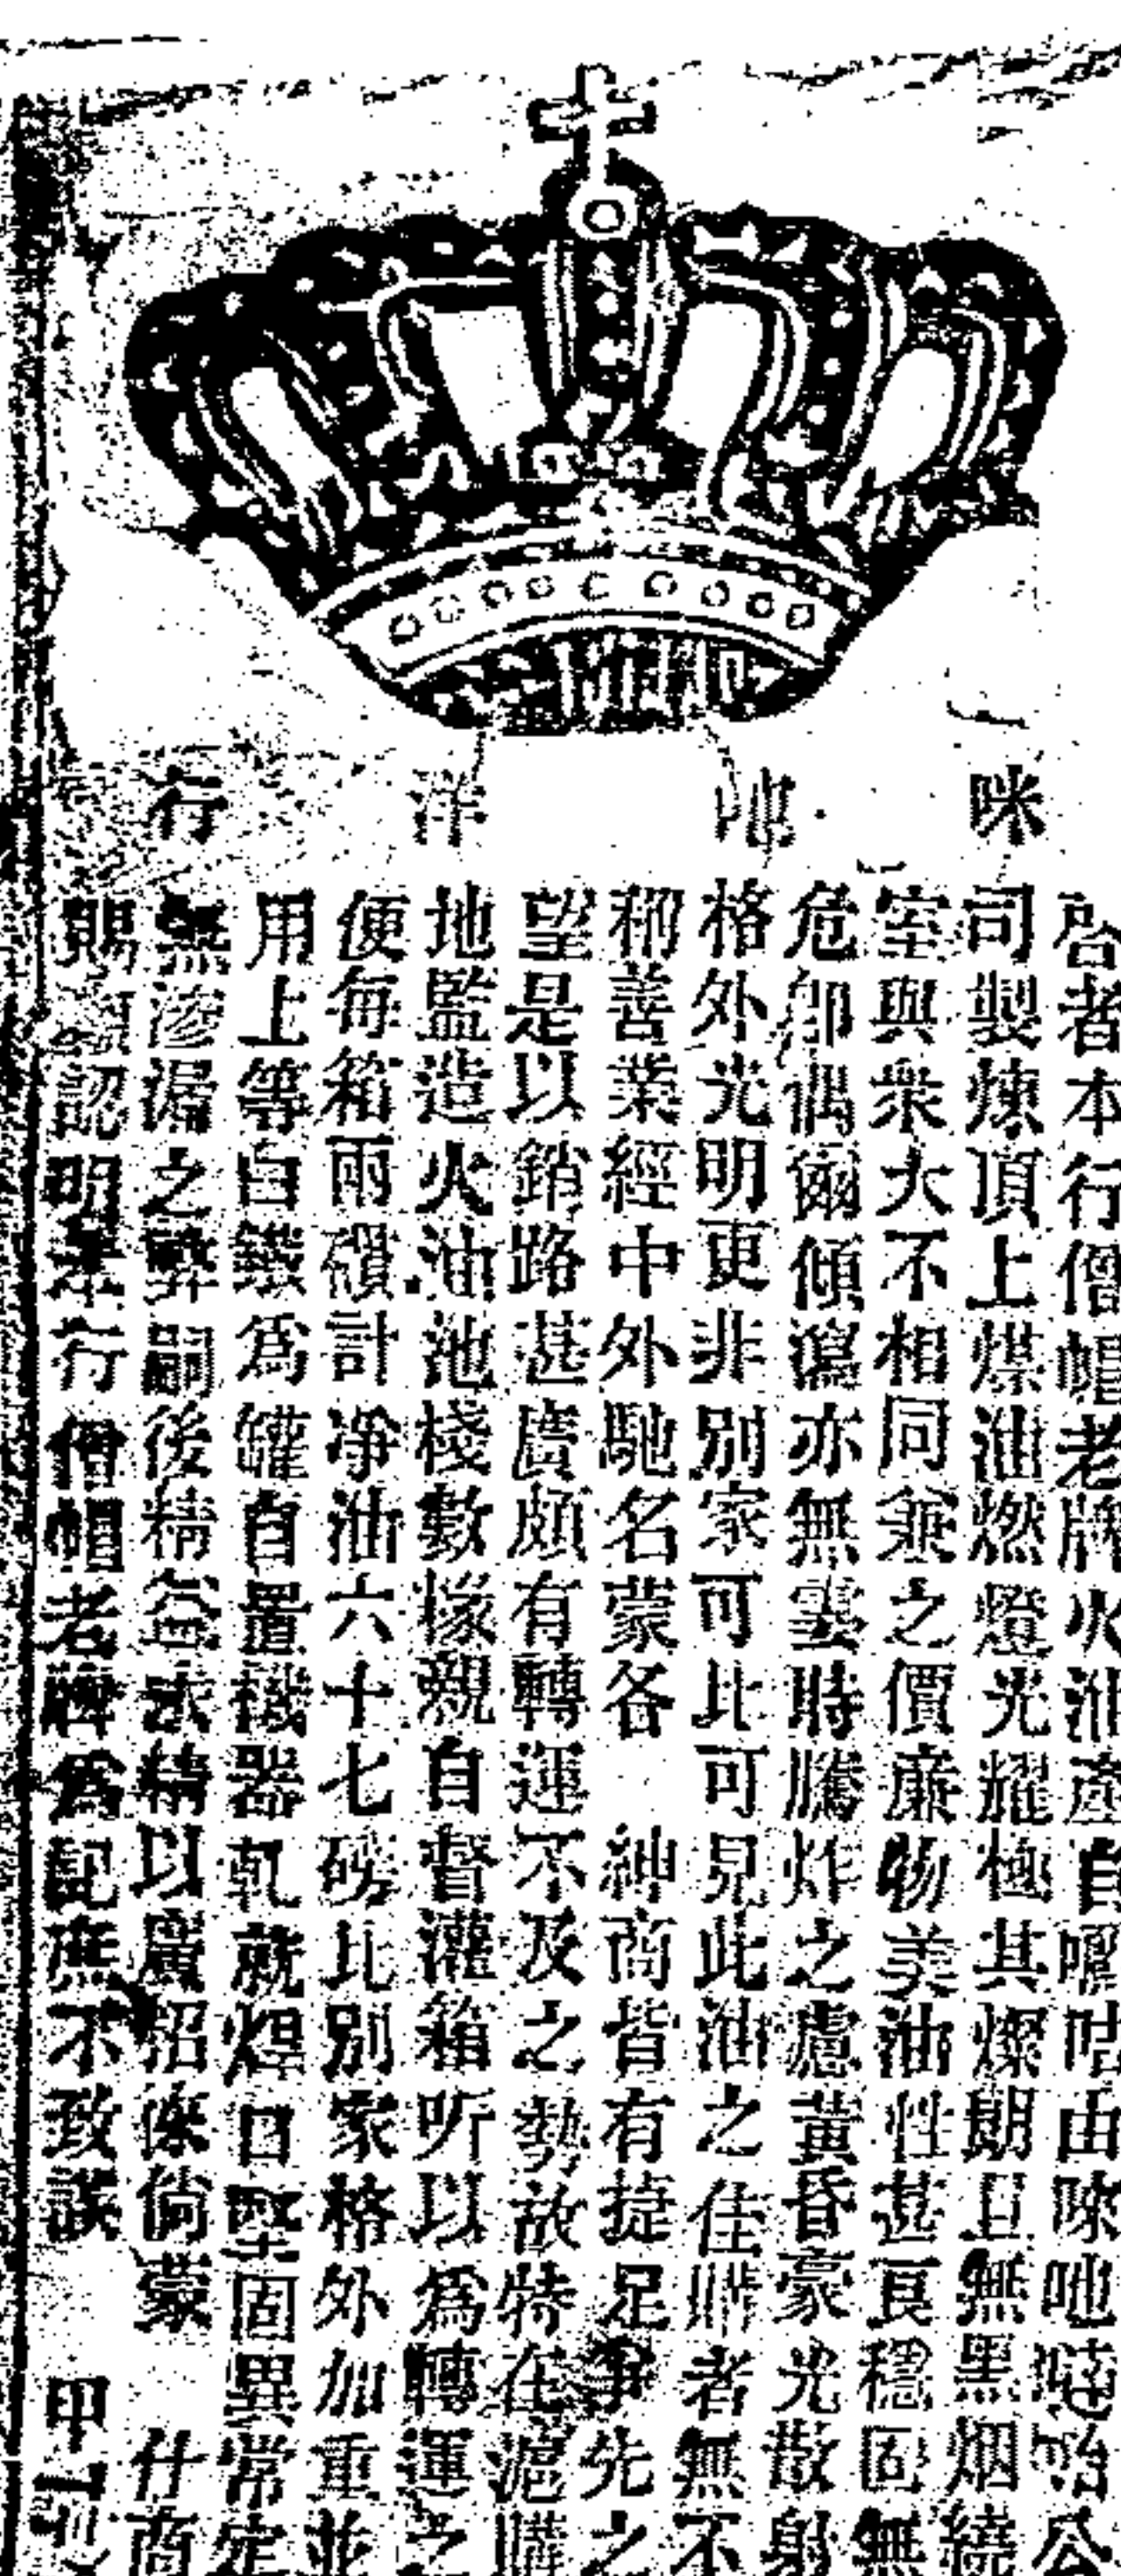 咪吔洋行
啓者本行僧帽老牌火油產自嚁咕由㗚吔噠咍公
司製煉頂上煤油燃燈光耀極其燦朗且無黑烟繞
室與衆大不相同兼之價廉物美油性甚良穩固無
危卽偶爾傾瀉亦無霎時騰炸之慮黃昏豪光散射
格外光明更非別家可比可見此油之佳購者無不
稱善業經中外馳名蒙各 紳商皆有捷足爭先之
望是以銷路甚廣頗有轉運不及之勢故特在滬購
地監造火油池棧數椽親自督灌箱听以爲轉運之
便每箱兩礶計凈油六十七磅比別家格外加重並
用上等白鐵爲罐自置機器軋就焊口堅固異常定
無滲漏之弊嗣後精益求精以廣招徠倘蒙 什商
賜顧認明本行僧帽老牌爲記庶不致誤 甲一